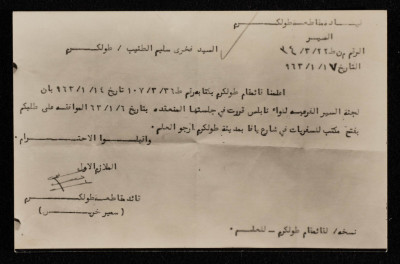 قيادة مقاطعة طولكرم
السير
الرقم م ن ط ٣٦/٣/٢٢
التاريخ ٩٦٣/١/١٧
السيد فخري سليم الخطيب / طولكرم
اعلمنا قائمقام طولكرم بكتابه رقم ط ١٠٧/٣/٣٦ تاريخ ٩٦٣/١/١٤ بان
لجنة السير الفرعيه للواء نابلس قررت في جلستها المنعقده بتاريخ ٦٣/١/٦ الموافقه على طلبكم
بفتح مكتب للسفريات في شارع يافا بمدينة طولكرم ارجو العلم .
واقبلوا الاحترام ،
الملازم الاول
قائد مقاطعة طولكرم
نسخه / قائمقام طولكرم - للعلم .